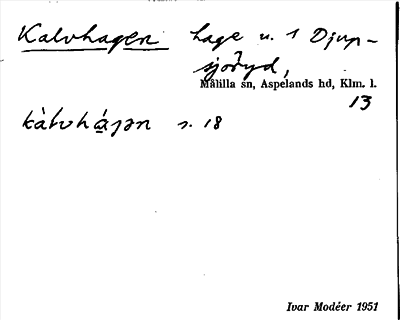 Kalvhagen hage u. 1 Djup-
sjöryd,
Målilla sn, Aspelands hd, Klm. l.
13
kàlvhá̱gən s. 18
Ivar Modéer 1951